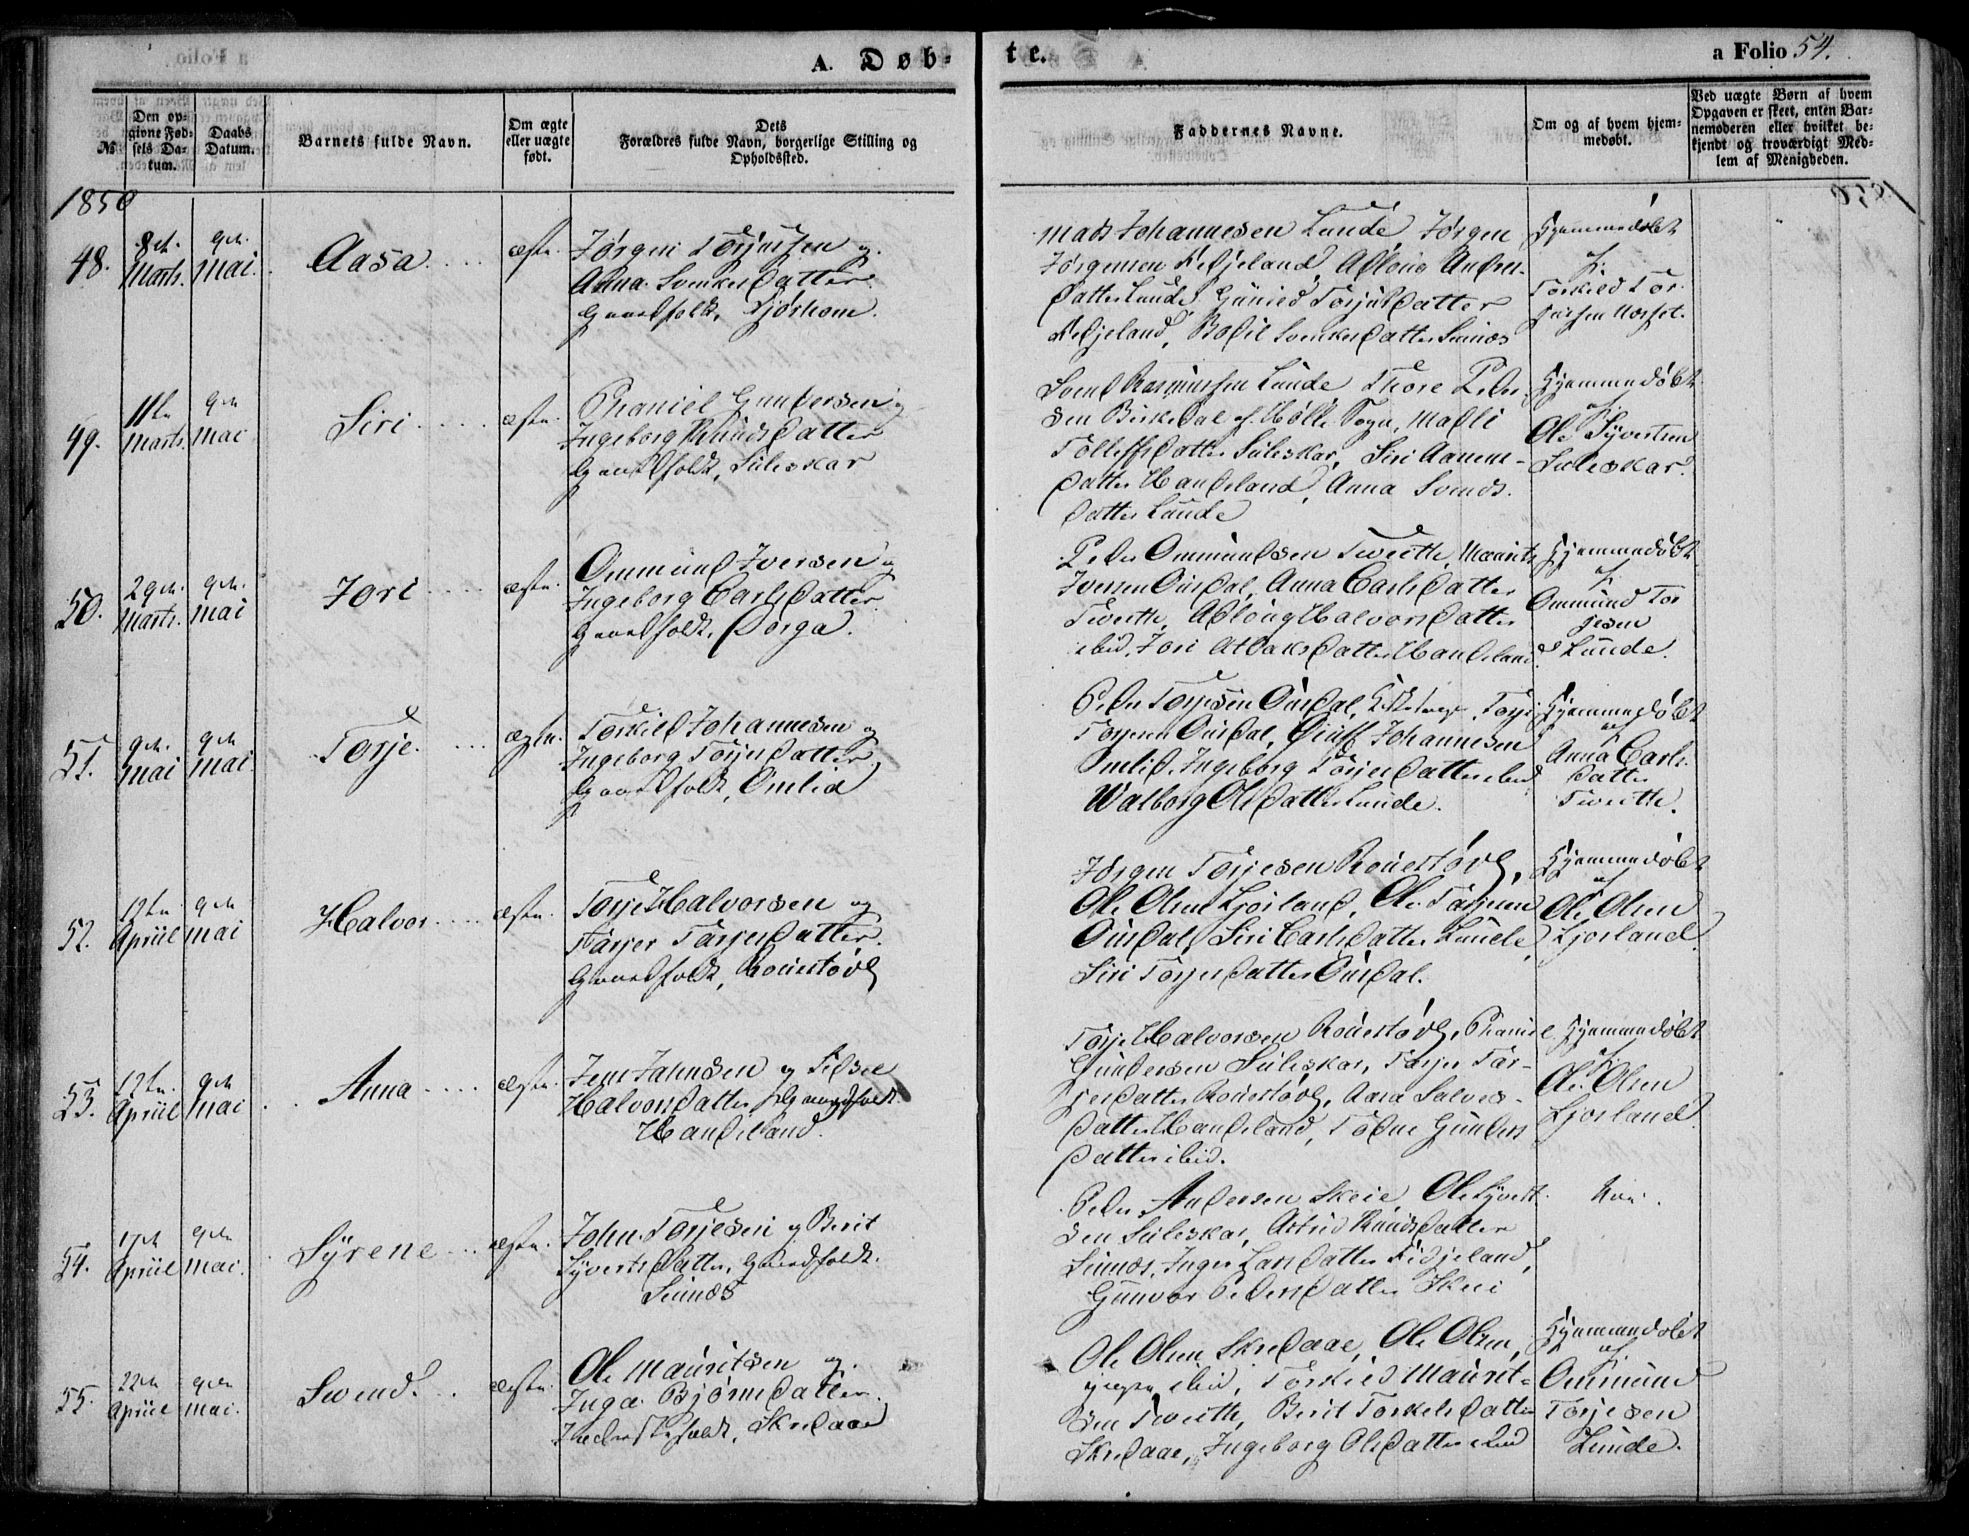 A. Døb-
te.
a Folio 54.
No
Den op-
givne Fød-
sels Da-
tum.
Daabs
Datum.
Barnets fulde Navn.
Om ægte
eller uægte
født.
Dets
Forældres fulde Navn, borgerlige Stilling og
Opholdssted.
Faddernes Navne.
Om og af hvem hjem-
medøbt.
Ved uægte Børn af hvem
Opgaven er skeet, enten Bar-
nemoderen eller hvilket be-
kjendt og troværdigt Med-
lem af Menigheden.
1850
48.
8de
Marts.
9de
Mai.
Aasa
ægte.
Jørgen Torjussen og
Anna Svenkesdatter
Gaardfolk, Fjørhom.
Mads Johannesen Lunde, Jørgen
Jørgensen Fidjeland, Adloug Anders-
datter Lunde, Gunild Torjusdatter
Fidjeland, Bodil Svenkesdatter Sinnes
Hjemmedøbt
af
Torkild Tor-
jussen
49.
11te
Marts.
9de
Mai
Siri
ægte.
Thaniel Gundersen og
Ingeborg Knudsdatter
Gaardfolk, Suleskar
Svend Rasmussen Lunde, Thore Peder-
sen Birkedal af Holle Sogn, Malli
Tollefsdatter Suleskar, Siri Aanen-
datter Handeland, Anna Svends-
datter Lunde
Hjemmedøbt
af
Ole Syvertsen
Suleskar.
50.
29de
Marts.
9de
Mai
Jori
ægte.
Ommund Iversen og
Ingeborg Carlsdatter
Gaardfolk,
Peder Ommundsen Tveite, Maurits
Iversen Ousdal, Anna Carlsdatter
Tveite, Adloug Halvorsdatter
ibid, Jori Aslaksdatter Handeland.
Hjemmedøbt
af
Ommund Tor-
jesen
Lunde.
51.
9de
Mai
9de
Mai
Torje
ægte.
Torkild Johannesen og
Ingeborg Torjesdatter
Gaardfolk, Omlid
Peder Torjesen Ousdal, Torje
Torjesen Ousdal, Johannesen
Omlid, Ingeborg Torjesdatter ibid
Walborg Olsdatter Lunde.
Hjemmedøbt
af
Anna Carls-
datter
Tveite.
52.
12te
Apriil
9de
Mai
Halvor
ægte.
Torje Halvorsen og
Tarjer Tarjesdatter.
Gaardfolk, Rouestøvl
Jørgen Torjesen Rouestøvl,
Ole Olsen Ljosland, Ole Tarjesen
Ousdal, Siri Carlsdatter Lunde,
Siri Torjesdatter Ousdal.
Hjemmedøbt
af
Ole Olsen
Ljosland.
53.
12te
Apriil
9de
Mai
Anna
ægte.
Jens Jahnsen og Sidsel
Halvorsdatter, Gaardfolk.
Handeland.
Torje Halvorsen Rouestøvl, Thaniel
Gundersen Suleskar, Tarjer Tar-
jesdatter Rouestøvl, Aasa Salves-
datter Handeland, Todne Gunders-
datter ibid.
Hjemmedøbt
af
Ole Olsen
Ljosland.
54.
17de
Apriil
9de
Mai.
Syrene
ægte.
John Torjesen og Berit
Syvertsdatter, Gaardfolk.
Sinnes
Peder Andersen Skeie, Ole Syvert-
sen Suleskar, Astrid Knudsdatter
Sinnes, Inger Larsdatter Fidjeland,
Gunvor Pedersdatter Skeie
Nei.
55.
22de
Apriil
9de
Mai.
Svend.
ægte.
Ole Mauritsen og
Inga Bjørnsdatter
Skredaae
Ole Olsen Skredaae, Ole Olsen,
yngre ibid, Torkild Maurit-
sen Tveite, Berit Torkelsdatter
Skredaae, Ingeborg Olsdatter ibid
Hjemmedøbt
af
Ommund
Torjesen
Lunde.